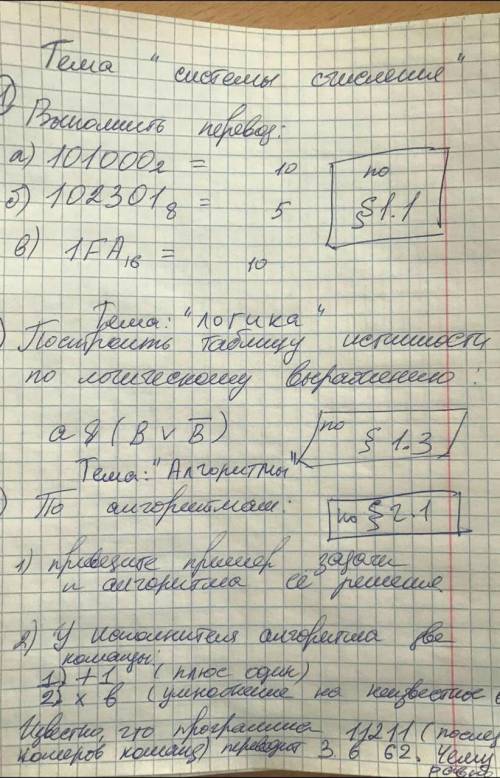 Тема "системы счисления"
1) Выполнить перевод:
а) 101000₂ = ₁₀
б) 102301₈ = ₅
в) 1FA₁₆ = ₁₀
по
§1.1
Тема: "логика"
) Построить таблицу истинности
по логическому выражению:
a & (B ∨ B̅)
по § 1.3
Тема: "Алгоритмы"
) По алгоритмам:
по §2.1
1) приведите пример задачи
и алгоритма её решения.
2) У исполнителя алгоритма две
команды:
1) +1 (плюс один)
2) x в (умножение на неизвестное в
Известно, что программа 11211 (послед
номеров команд) переводит 3 в 62. Чему
равно